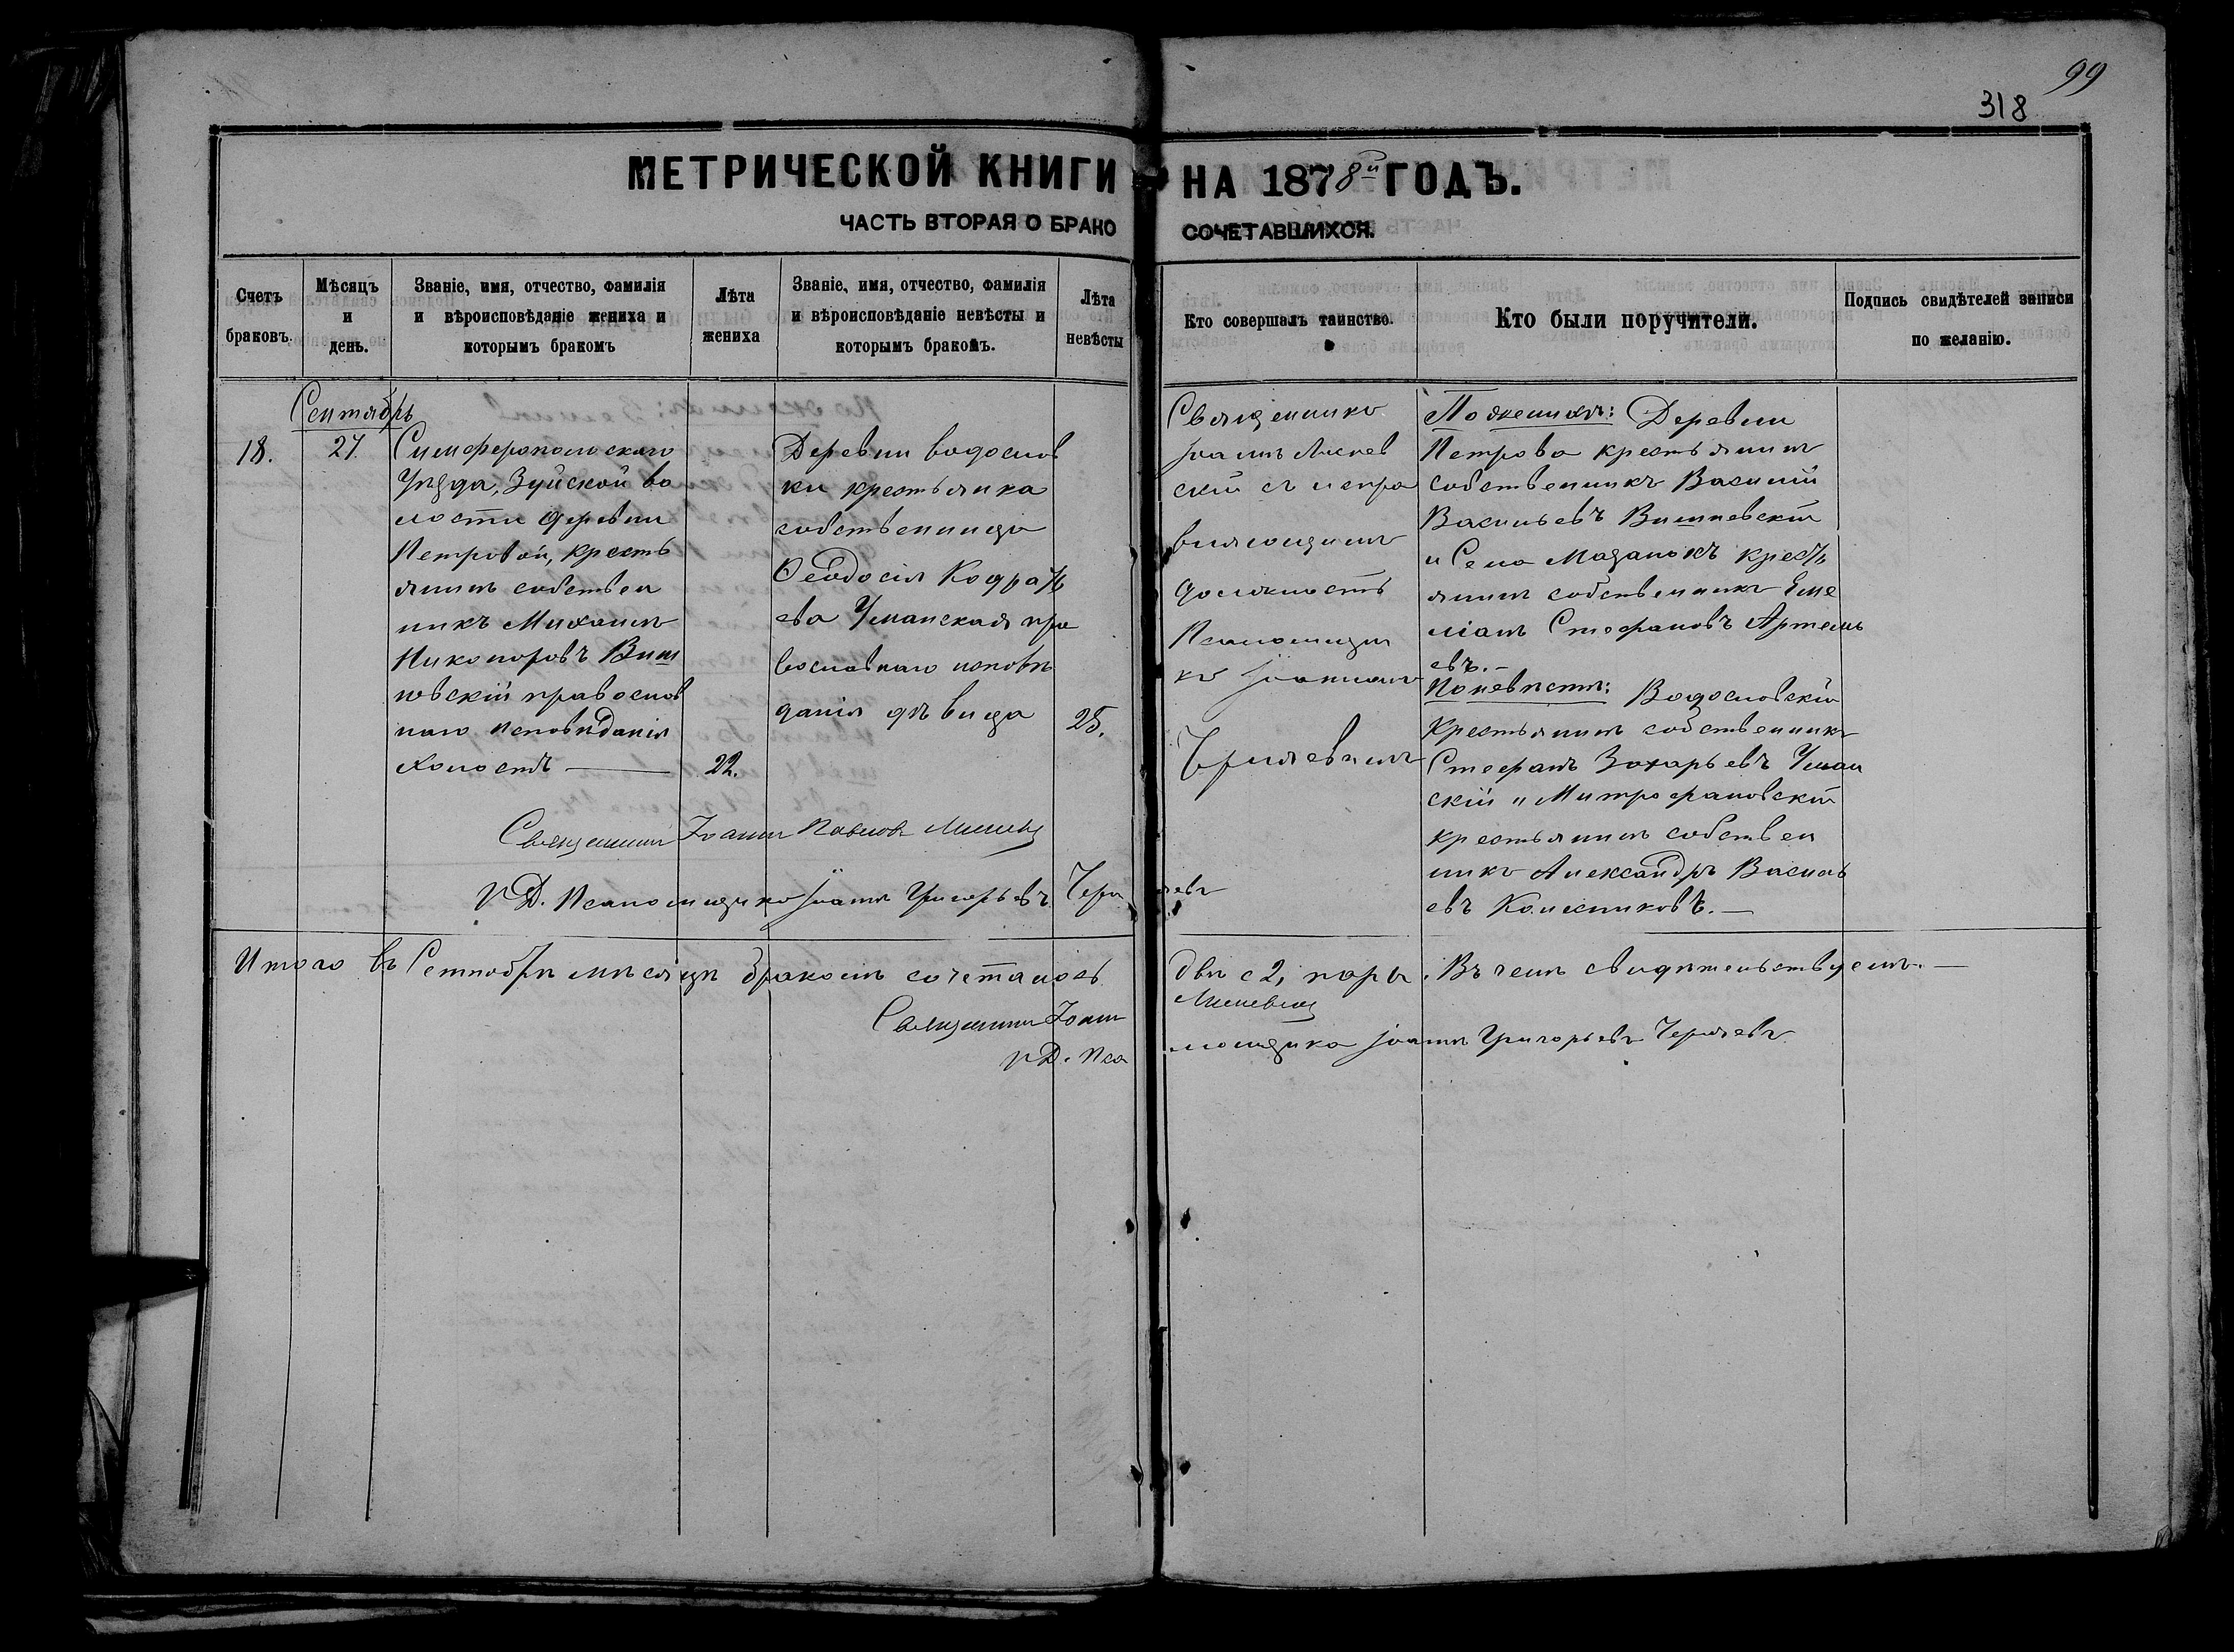 99
318
МЕТРИЧЕСКОЙ КНИГИ НА 1878й ГОДЪ.
ЧАСТЬ ВТОРАЯ О БРАКО СОЧЕТАВШИХСЯ.
Счетъ браковъ.
Мѣсяцъ и день.
Званіе, имя, отчество, фамилія
и вѣроисповѣданіе жениха и
которымъ бракомъ
Лѣта жениха
Званіе, имя, отчество, фамилія
и вѣроисповѣданіе невѣсты и
которымъ бракомъ.
Лѣта невѣсты
Кто совершалъ таинство.
Кто были поручители.
Подпись свидѣтелей записи
по желанію.
Сентябрь
18.
27.
Симферопольскаго
Уѣзда, Зуйской во
лости деревни
Петровой, кресть
янинъ собствен
никъ Михаилъ
Никоноровъ Виш
невскій православ
наго исповѣданія
холостъ
22.
Деревни водослов
ки крестьянка
собственница
Ѳеодосія Кодрать
ева Уманская пра
вославнаго исповѣ
данія дѣвица
25.
Священникъ
Іоаннъ
скій съ испра
вляющимъ
должность
Псаломщи
къ Іоанномъ
По женихѣ: Деревни
Петрова крестьянинъ
собственникъ Василій
Васильевъ Вишневскій
и Села Мазанокъ кресть
янинъ собственникъ Еме
ліанъ Стефановъ Артемь
евъ.-
По невѣстѣ: Водословскій
крестьянинъ собственникъ
Стефанъ Захарьевъ Уман
скій и Митрофановскій
крестьянинъ собствен
никъ Александръ Василь
евъ Колесниковъ.-
Священникъ Іоаннъ Павловъ
И Д. Псаломщика Іоаннъ Григорьевъ
Итого въ Сентябрѣ мѣсяцѣ бракомъ сочеталось двѣ (2) пары. Въ чемъ свидѣтельствуемъ.-
Священникъ Іоаннъ
И Д. Псаломщика Іоаннъ Григорьевъ